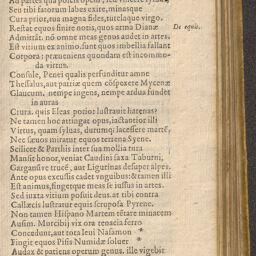 Seu tibi fatorum labes exire, minasque
Cura prior, tua magna fides, tutelaque virgo.
Restat equos finire notis, quos arma Dianæ
De equis.
Admittāt. nō omne meas genus audet in artes.
Est vitium ex animo. sunt quos imbellia fallant
Corpora: præueniens quondam est incōmmo-
da virtus.
Consule, Penei qualis perfunditur amne
Thessalus, aut patriæ quem cōspexere Mycenæ
Glaucum. nempe ingens, nempe ardua fundet
in auras
Crura. quis Eleas potior lustrauit harenas?
Ne tamen hoc attingat opus, iactantior illi
Virtus, quam syluas, durumq; lacessere martē,
Nec sæuos miratur equos terrena Syene.
Scilicet & Parthis inter sua mollia rura
Mansit honor, veniat Caudini saxa Taburni,
Garganúve trucē, aut Ligurinas desuper alpes.
Ante opus excussis cadet vnguibus: & tamen illi
Est animus, fingetque meas se iussus in artes.
Sed iuxta vitium posuit deus. at tibi contra
Callæcis lustratur equis scruposa Pyrene.
Non tamen Hispano Martem tētare minacem
Ausim. Murcibij vix ora tenacia ferro
Concedunt, aut tota leui Nasamon *
Fingit equos Pisis Numidæ soluer *
Audax & patiens operum genus. ille vigebit